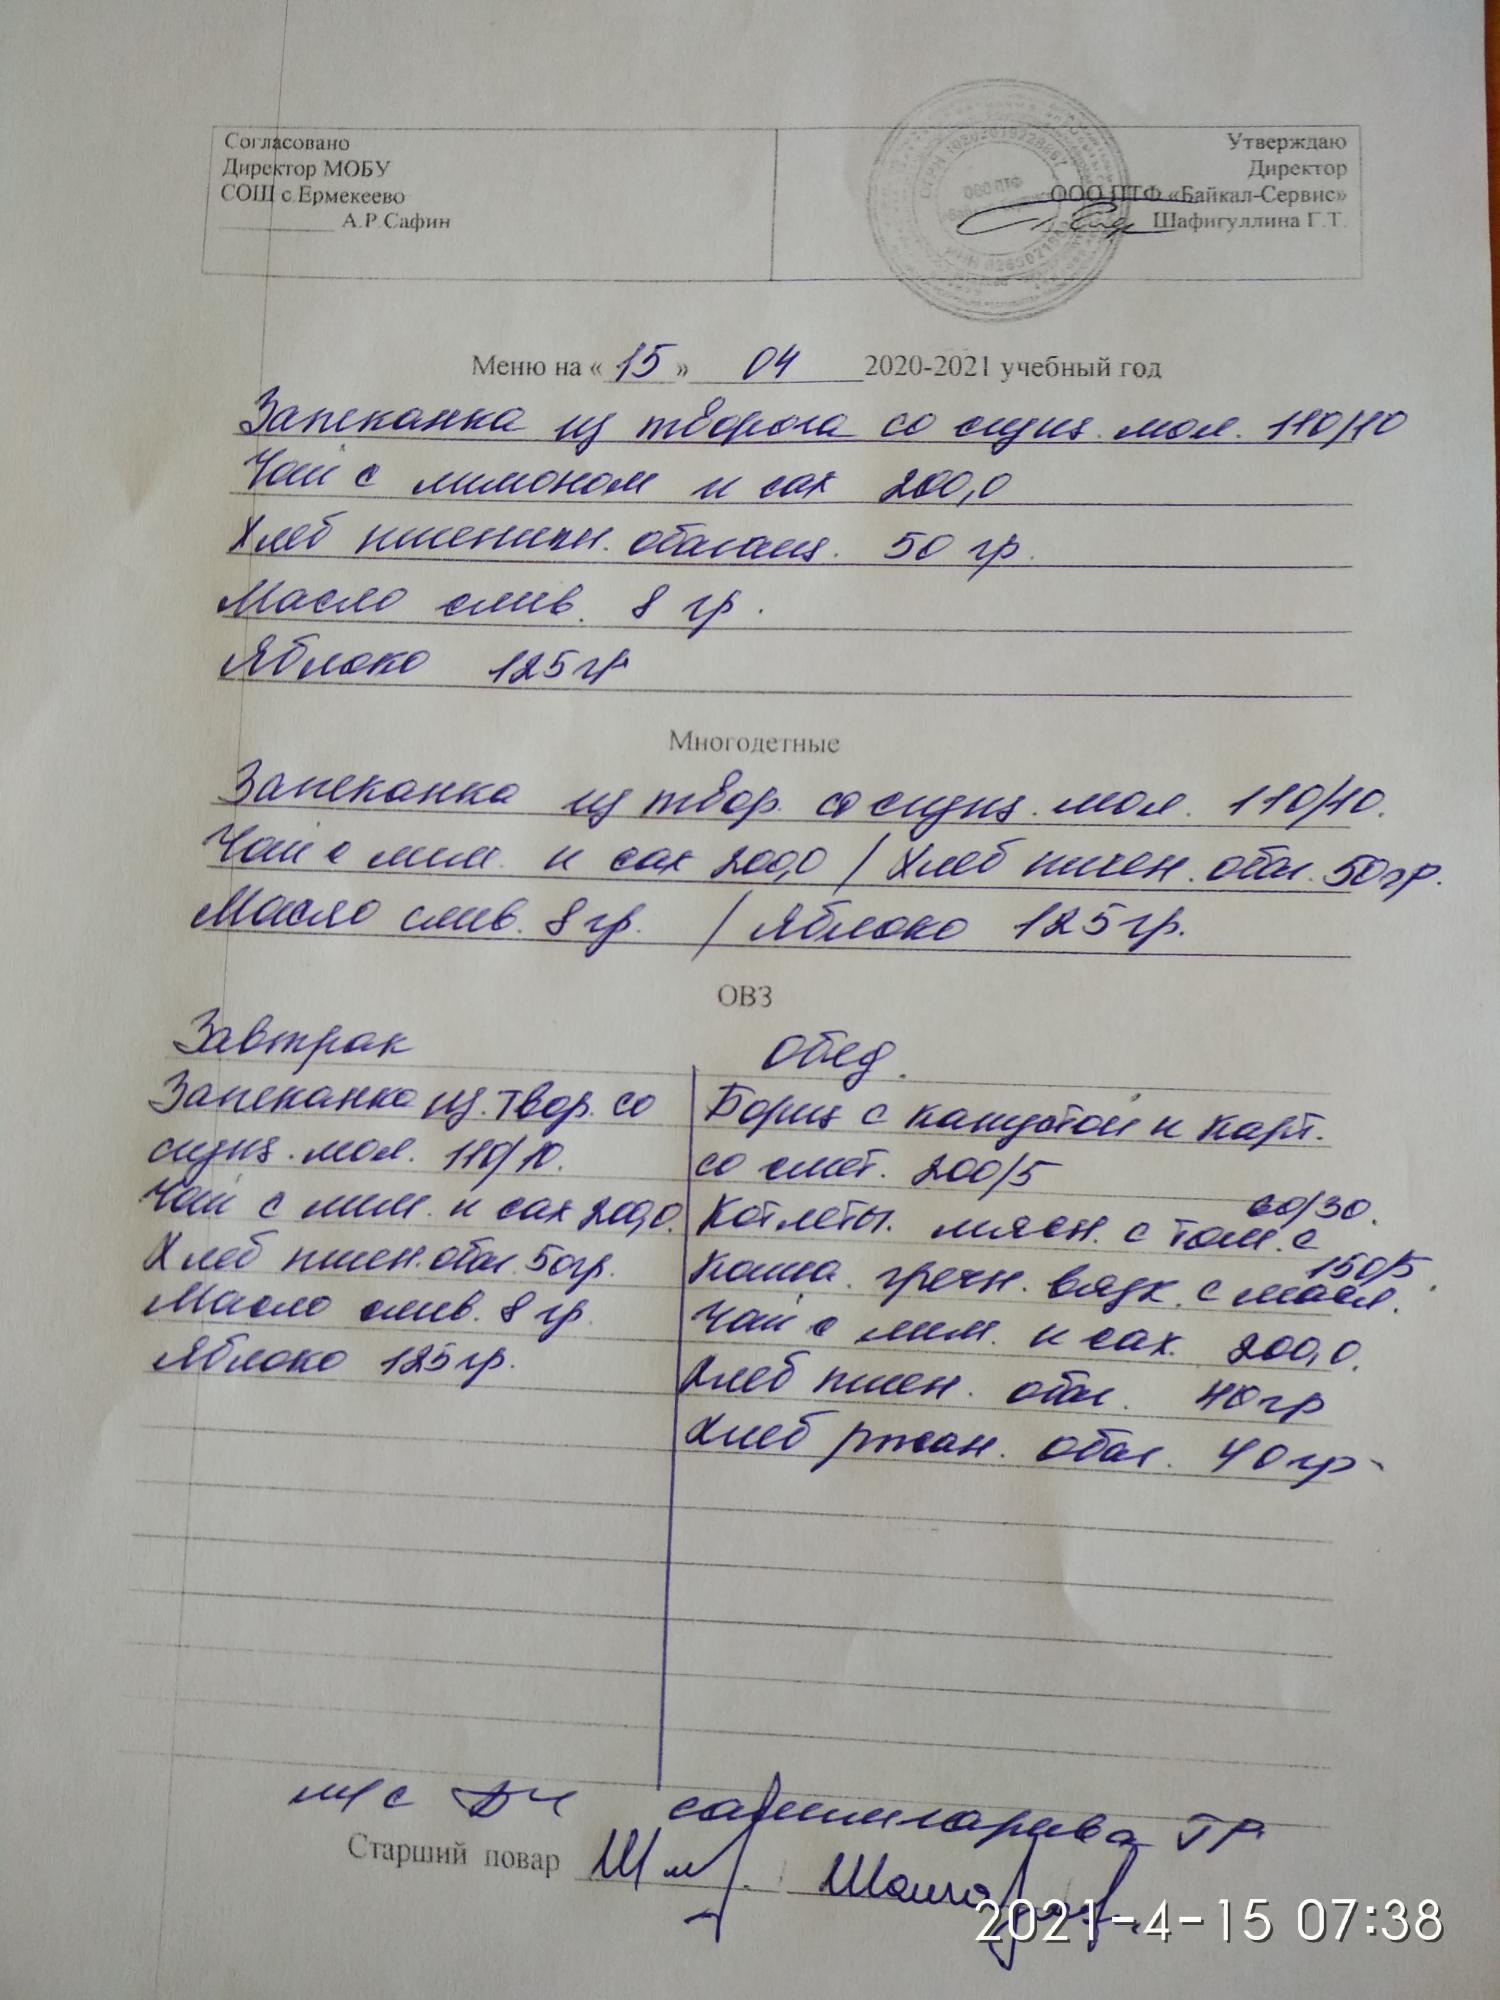 Согласовано
Директор МОБУ
СОШ с.Ермекеево
А.Р.Сафин
Утверждаю
Директор
ООО ПТФ «Байкал-Сервис»
Шафигуллина Г.Т.
Меню на « 15 » 04 2020-2021 учебный год
Запеканка из творога со сгущ. мол. 110/10
Чай с лимоном и сах 200,0
Хлеб пшеничн. обогащ. 50 гр.
Масло слив. 8 гр.
Яблоко 125 гр
Многодетные
Запеканка из твор. со сгущ. мол. 110/10.
Чай с лим. и сах 200,0 / Хлеб пшен. обог. 50 гр.
Масло слив. 8 гр. / Яблоко 125 гр.
ОВЗ
Завтрак
Запеканка из. твор. со
сгущ. мол. 110/10.
Чай с лим. и сах 200,0.
Хлеб пшен. обог. 50 гр.
Масло слив. 8 гр.
Яблоко 125 гр.
Обед.
Борщ с капустой и карт.
со смет. 200/5
Котлеты. мясн. с том. с 60/30.
Каша. гречн. вязк. с масл. 150/5.
Чай с лим. и сах. 200,0.
Хлеб пшен. обог. 40 гр
Хлеб ржан. обог. 40 гр
м/с
Старший повар
2021-4-15 07:38